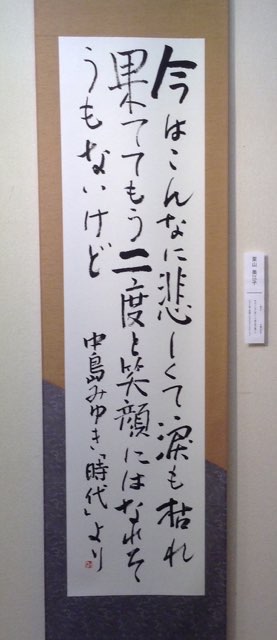 今はこんなに悲しくて涙も枯れ
果ててもう二度と笑顔にはなれそ
うもないけど
中島みゆき「時代」より